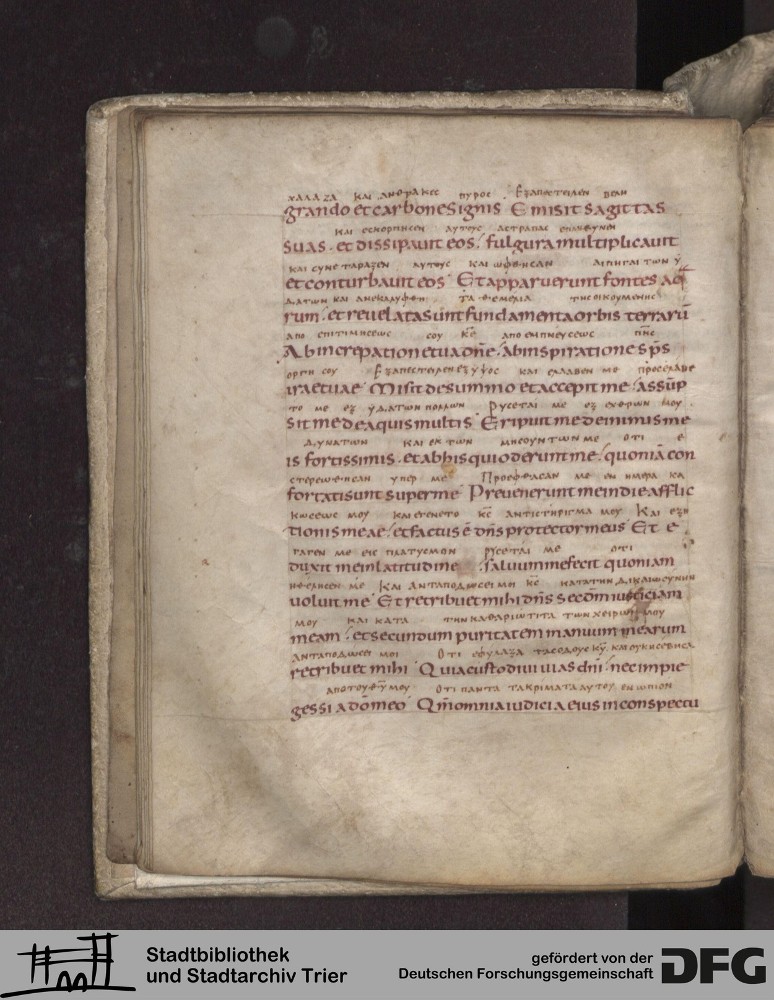 ΧΑΛΑΖΑ ΚΑΙ ΑΝΘΡΑΚΕC ΠΥΡΟC ΕΞΑΠΕCΤΕΙΛΕΝ ΒΕΛΗ
grando et carbones ignis Emisit sagittas
ΚΑΙ ΕCΚΟΡΠΙCΕΝ ΑΥΤΟΥC ΑCΤΡΑΠΑC ΕΠΛΗΘΥΝΕΝ
suas . et dissipavit eos . fulgura multiplicavit
ΚΑΙ CΥΝΕΤΑΡΑΞΕΝ ΑΥΤΟΥC ΚΑΙ ΩΦΘΗCΑΝ ΑΙ ΠΗΓΑΙ ΤΩΝ Υ
et conturbavit eos Et apparuerunt fontes aq
ΔΑΤΩΝ ΚΑΙ ΑΝΕΚΑΛΥΦΘΗ ΤΑ ΘΕΜΕΛΙΑ ΤΗC ΟΙΚΟΥΜΕΝΗC
rum . et revelata sunt fundamenta orbis terrarū
ΑΠΟ ΕΠΙΤΙΜΗCΕΩC CΟΥ Κ̅Ε̅ ΑΠΟ ΕΜΠΝΕΥCΕΩC Π̅Ν̅C̅
Ab increpatione tua dn̄e . ab inspiratione sp̄s
ΟΡΓΗC CΟΥ ΕΞΑΠΕCΤΕΙΛΕΝ ΕΞ ΥΨΟC ΚΑΙ ΕΛΑΒΕΝ ΜΕ ΠΡΟCΕΛΑΒΕ
irae tuae Misit de summo et accepit me . assūp
ΤΟ ΜΕ ΕΞ ΥΔΑΤΩΝ ΠΟΛΛΩΝ ΡΥCΕΤΑΙ ΜΕ ΕΞ ΕΧΘΡΩΝ ΜΟΥ
sit me de aquis multis Eripuit me de inimis me
ΔΥΝΑΤΩΝ ΚΑΙ ΕΚ ΤΩΝ ΜΗCΟΥΝΤΩΝ ΜΕ ΟΤΙ Ε
is fortissimis . et ab his qui oderunt me . quoniā con
CΤΕΡΕΩΘΗCΑΝ ΥΠΕΡ ΜΕ ΠΡΟΕΦΘΑCΑΝ ΜΕ ΕΝ ΗΜΕΡΑ ΚΑ
fortati sunt super me Prevenerunt me in die afflic
ΚΩCΕΩC ΜΟΥ ΚΑΙ ΕΓΕΝΕΤΟ Κ̅C̅ ΑΝΤΙCΤΗΡΙΓΜΑ ΜΟΥ ΚΑΙ ΕΞΗ
tionis meae . et factus ē dn̄s protector meus Et e
ΓΑΓΕΝ ΜΕ ΕΙC ΠΛΑΤΥCΜΟΝ ΡΥCΕΤΑΙ ΜΕ ΟΤΙ
duxit me in latitudine . salvum me fecit quoniam
ΗΘΕΛΗCΕΝ ΜΕ ΚΑΙ ΑΝΤΑΠΟΔΩCΕΙ ΜΟΙ Κ̅C̅ ΚΑΤΑ ΤΗΝ ΔΙΚΑΙΩCΥΝΗΝ
voluit me Et retribuet mihi dn̄s secdm̄ iusticiam
ΜΟΥ ΚΑΙ ΚΑΤΑ ΤΗΝ ΚΑΘΑΡΙΩΤΙΤΑ ΤΩΝ ΧΕΙΡΩΝ ΜΟΥ
meam . et secundum puritatem manuum mearum
ΑΝΤΑΠΟΔΩCΕΙ ΜΟΙ ΟΤΙ ΕΦΥΛΑΞΑ ΤΑC ΟΔΟΥC Κ̅Υ̅ ΚΑΙ ΟΥΚ
retribuet mihi Quia custodivi vias dn̄i . nec impie
ΑΠΟ ΤΟΥ Θ̅Υ̅ ΜΟΥ ΟΤΙ ΠΑΝΤΑ ΤΑ ΚΡΙΜΑΤΑ ΑΥΤΟΥ ΕΝΩΠΙΟΝ
gessi a dō meo Qm̄ omnia iudicia eius in conspectu
Stadtbibliothek
und Stadtarchiv Trier
gefördert von der
Deutschen Forschungsgemeinschaft
DFG